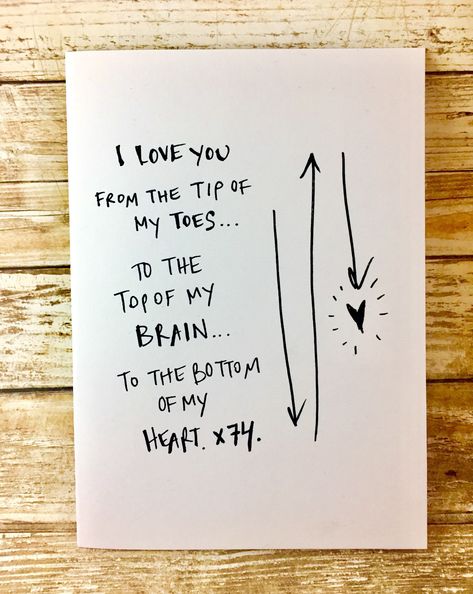 I LOVE YOU
FROM THE TIP OF
MY TOES...
TO THE
TOP OF MY
BRAIN...
TO THE BOTTOM
OF MY
HEART. x74.